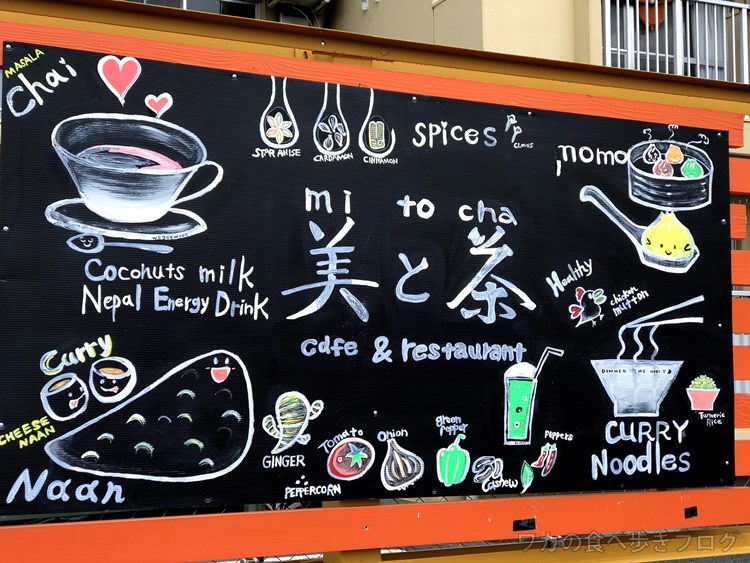 MASALA
chai
WEDGEWOOD
Coconuts milk
Nepal Energy Drink
STAR ANISE
CARDAMON
CINNAMON
SPICES
CLOVES
momo
mi to cha
美と茶
cafe & restaurant
Healthy
chicken
mutton
CURRY
Noodles
Turmeric
Rice
Curry
CHEESE
NAAN
Naan
GINGER
PEPPERCORN
Tomato
Onion
green
pepper
Cashew
Peppers
ワカの食べ歩きブログ